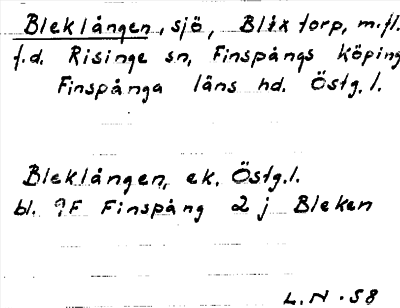 Bleklången, sjö, Blixtorp, m.fl.
f.d. Risinge sn, Finspångs köping
Finspånga läns hd. Östg.l.
Bleklången, ek. Östg.l.
bl. 9F Finspång 2 j Bleken
L.N. 58